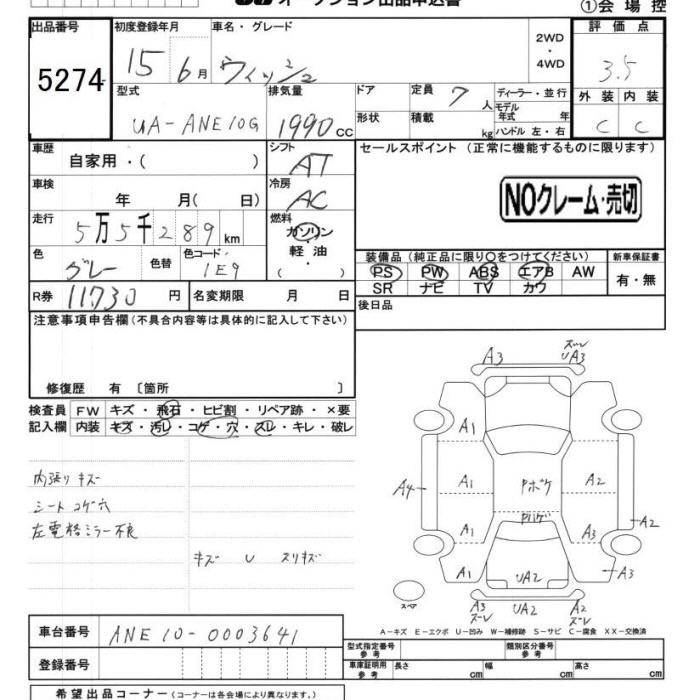 オークション出品申込書
①会場控
出品番号 初度登録年月 車名・グレード 評価点
5274 15 6月 ウィッシュ 2WD・4WD 3.5
型式 排気量 ドア 定員 7人 ディーラー・並行 外装 内装
UA-ANE10G 1990cc 形状 積載 kg モデル年式 年 ハンドル 左・右 C C
車歴 自家用・( ) シフト AT セールスポイント (正常に機能するものに限ります)
車検 年 月( 日) 冷房 AC NOクレーム・売切
走行 5万5千289km 燃料 ガソリン 軽油 ( ・ )
色 グレー 色替 色コード 1E9
装備品 (純正品に限り○をつけてください) 新車保証書
PS PW ABS エアB AW 有・無
SR ナビ TV カワ
R券 11730円 名変期限 月 日 後日品
注意事項申告欄(不具合内容等は具体的に記入して下さい)
修復歴 有 〔箇所 〕
検査員 FW キズ・飛石・ヒビ割・リペア跡・×要
記入欄 内装 キズ・汚レ・コゲ・穴・スレ・キレ・破レ
内張りキズ
シートコゲ穴
左電格ミラー不良
キズ U スリキズ
A3 ズレ UA3
A1
A4 A1 Pボケ A2
Pハゲ
A1 A3 A2
A1 UA2 A3
スペア A3 ズレ UA2 A2 ズレ
A-キズ E-エクボ U-凹み W-補修跡 S-サビ C-腐食 XX-交換済
車台番号 ANE10-0003641
型式指定番号 参考 類別区分番号 参考
登録番号 車庫証明用 参考 長さ cm 幅 cm 高さ cm
希望出品コーナー (コーナーは各会場により異なります。)